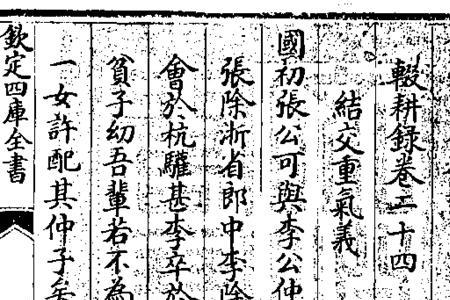 輟耕録卷二十四
結交重氣義
國初張公可與李公仲
張除浙省郎中李除
會於杭驩甚李卒於
貧子幼吾輩若不為
一女許配其仲子矣
欽定四庫全書